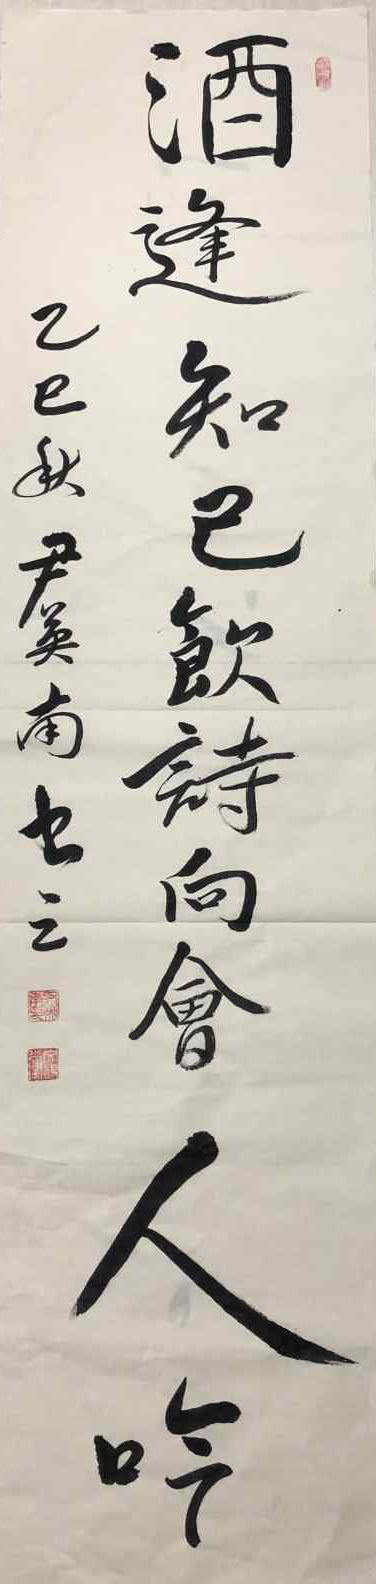 酒逢知己飲詩向會人吟
乙巳秋尹英南书之